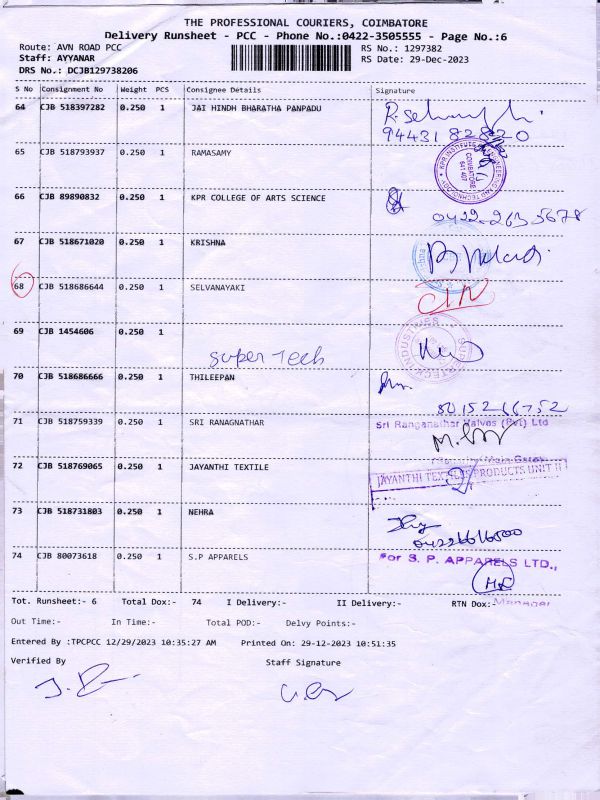 THE PROFESSIONAL COURIERS, COIMBATORE
Delivery Runsheet - PCC - Phone No.:0422-3505555 - Page No.:6
Route: AVN ROAD PCC RS No.: 1297382
Staff: AYYANAR RS Date: 29-Dec-2023
DRS No.: DCJB129738206
S No Consignment No Weight PCS Consignee Details Signature
64 CJB 518397282 0.250 1 JAI HINDH BHARATHA PANPADU
9443182820
65 CJB 518793937 0.250 1 RAMASAMY
COIMBATORE 641 407
66 CJB 89890832 0.250 1 KPR COLLEGE OF ARTS SCIENCE
0422-2635678
67 CJB 518671020 0.250 1 KRISHNA
68 CJB 518686644 0.250 1 SELVANAYAKI
69 CJB 1454606 0.250 1
super Tech
SUPERTECH INDUSTRIES
70 CJB 518686666 0.250 1 THILEEPAN
71 CJB 518759339 0.250 1 SRI RANAGNATHAR
Sri Ranganathar Valves (Pvt) Ltd
72 CJB 518769065 0.250 1 JAYANTHI TEXTILE
JAYANTHI TEXTILES PRODUCTS UNIT II
73 CJB 518731803 0.250 1 NEHRA
74 CJB 80073618 0.250 1 S.P APPARELS
For S. P. APPARELS LTD.,
Manager
Tot. Runsheet:- 6 Total Dox:- 74 I Delivery:- II Delivery:- RTN Dox:-
Out Time:- In Time:- Total POD:- Delvy Points:-
Entered By :TPCPCC 12/29/2023 10:35:27 AM Printed On: 29-12-2023 10:51:35
Verified By Staff Signature